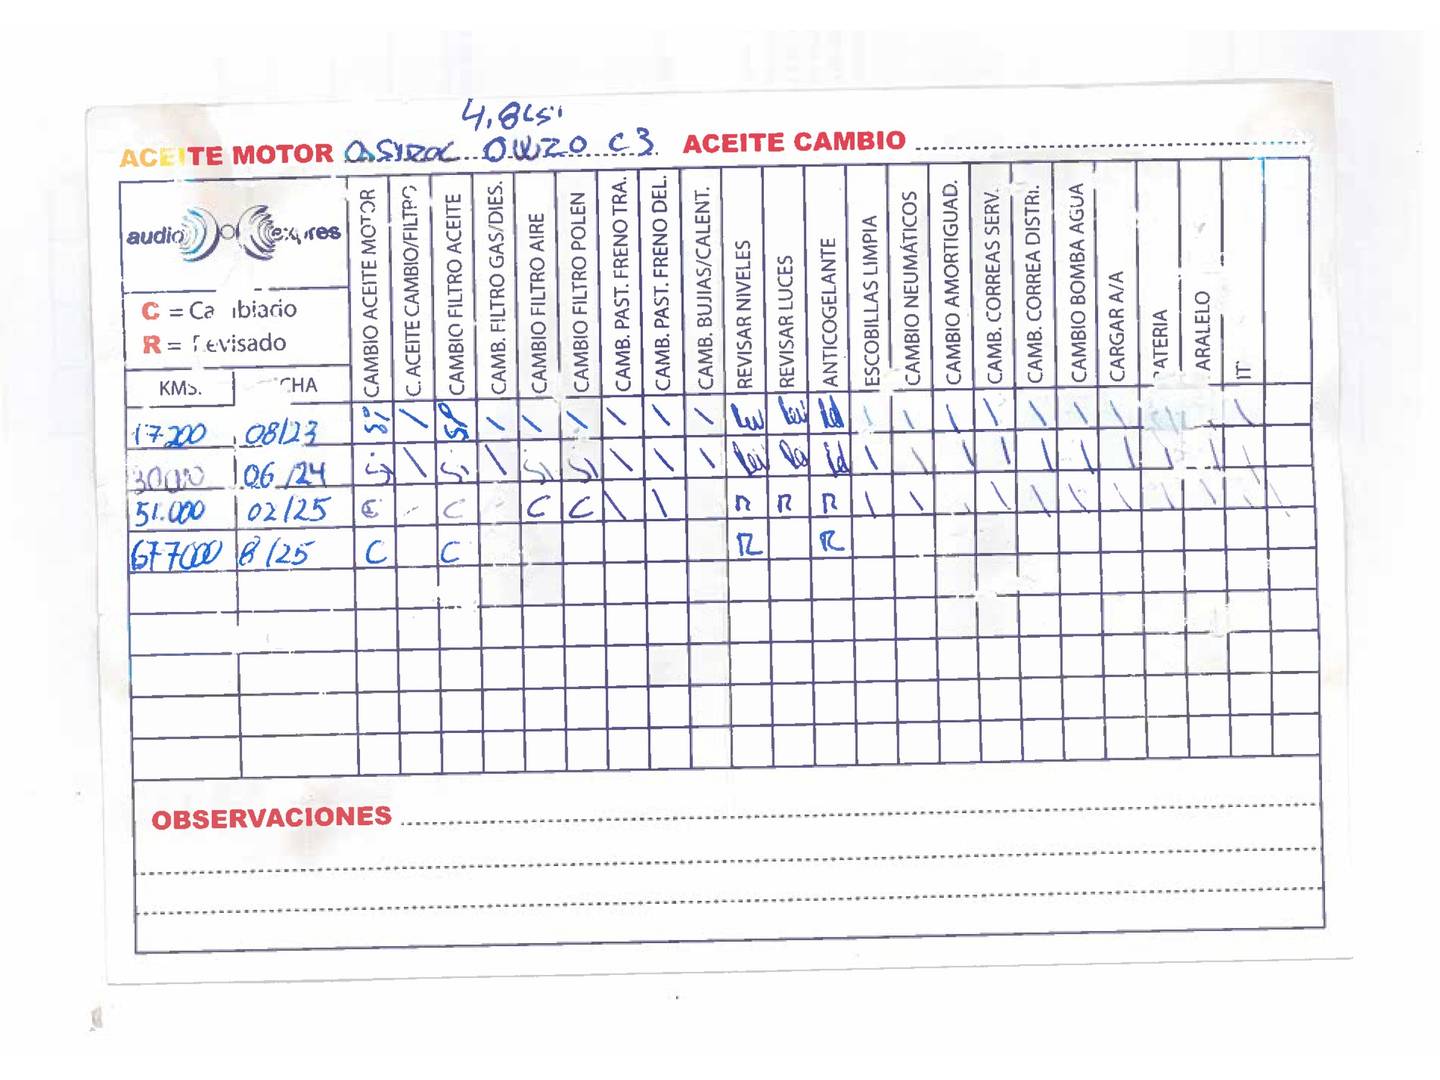 4,8
ACEITE MOTOR 0W20 C3 ACEITE CAMBIO
audio
C = Cambiado
R = Revisado
KMS. CHA CAMBIO ACEITE MOTOR C. ACEITE CAMBIO/FILTRO CAMBIO FILTRO ACEITE CAMB. FILTRO GAS/DIES. CAMBIO FILTRO AIRE CAMBIO FILTRO POLEN CAMB. PAST. FRENO TRA. CAMB. PAST. FRENO DEL. CAMB. BUJIAS/CALENT. REVISAR NIVELES REVISAR LUCES ANTICOGELANTE ESCOBILLAS LIMPIA CAMBIO NEUMÁTICOS CAMBIO AMORTIGUAD. CAMB. CORREAS SERV. CAMB. CORREA DISTRI. CAMBIO BOMBA AGUA CARGAR A/A ATERIA ARALELO IT
17.200 08/23 Si \ Si \ \ \ \ \ \ \ \ \ \ \ \ \ \ \
06/24 Si \ Si \ Si Si \ \ \ \ \ \ \ \ \ \ \ \ \
51.000 02/25 C - C - C C \ \ R R R \ \ \ \ \ \ \ \ \ \ \
677000 8/25 C C R R
OBSERVACIONES